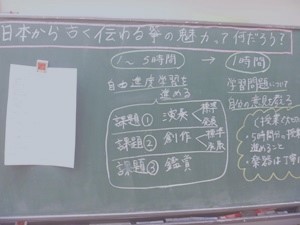 日本から古く伝わる箏の魅力って何だろう?
1〜5時間 → 1時間
自由進度学習を
進める
学習問題について
自分の意見を
課題① 演奏 標準
発展
課題② 創作 標準
発展
課題③ 鑑賞
5時間分の
進めること
楽器は丁寧に